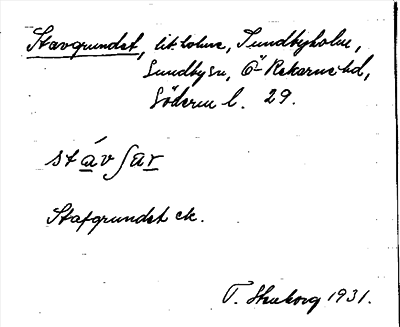 Stavgrundet, lit. holme, Sundbyholm,
Sundby sn, Ö-Rekarne hd,
Söderm l. 29.
stávʃar
Stafgrundet ek.
T. 1931.